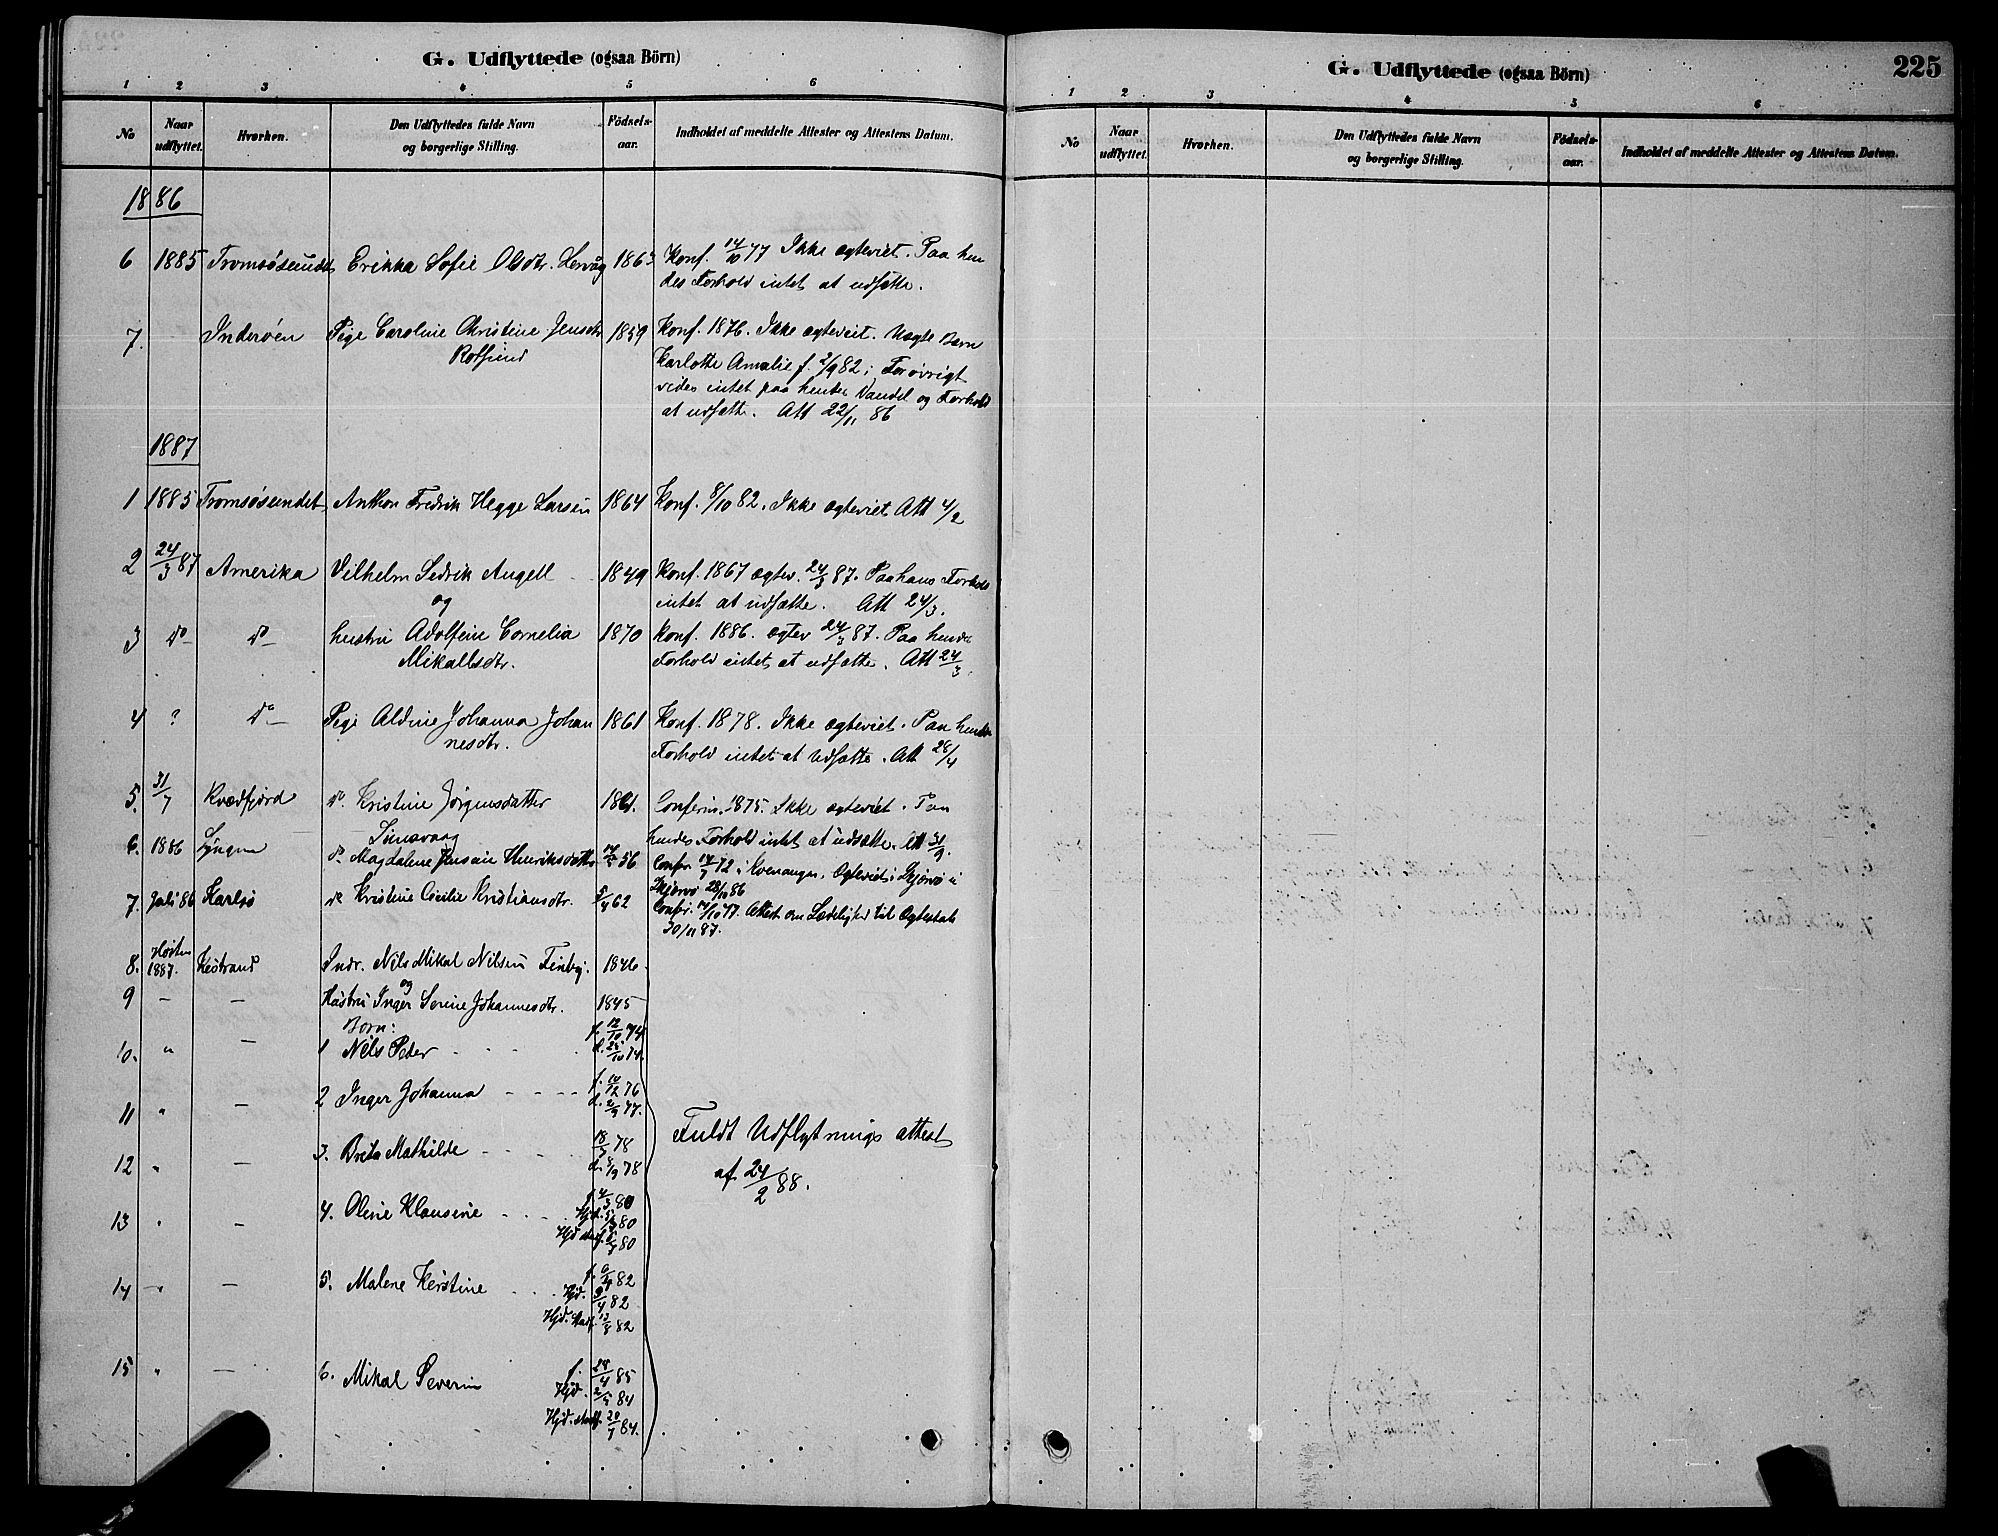 G. Udflyttede (ogsaa Börn)
1 2 3 4 5 6
No
Naar udflyttet.
Hvorhen.
Den Udflyttedes fulde Navn og borgerlige Stilling.
Födsels-aar.
Indholdet af meddelte Attester og Attestens Datum.
1886
6 1885 Tromsøsundet Erikka Sofie Olsdtr. 1863 Konf. 14/10 77 Ikke ægteviet. Paa hen
des Forhold intet at udsætte.
7. Inderøen Pige Caroline Christine Jensdtr 1859 Konf. 1876. Ikke ægteviet. Uægte Barn
Rotsund Karlotte Amalie f. 2/9 82; Forøvrigt
vides intet paa hendes Vandel og Forhold
at udsætte. Att 22/11 86
1887
1 1885 Tromsøsundet Anthon Fredrik Hegge Larsen 1864 Konf. 8/10 82. Ikke ægteviet Att 4/2
2 24/3 87 Amerika Vilhelm Sedrik Angell 1849 Konf. 1867 ægtev. 24/3 87. Paa hans Forhold
og intet at udsætte. Att 24/3.
3 do do hustru Adolfine Cornelia 1870 Konf. 1886. ægtev 24/3 87. Paa hendes
Mikalsdtr. Forhold intet at udsætte. Att 24/3.
4 ? do Pige Aldine Johanna Johan 1861 Konf. 1878. Ikke ægteviet. Paa hendes
nesdtr. Forhold intet at udsætte. Att 28/4
5. 31/7 Kvædfjord do. Kristine Jørgensdatter 1861. Conferm. 1875. Ikke ægteviet. Paa
hendes Forhold intet at udsætte. Att 31/9.
6. 1886 Lyngen do Magdalene Jensine Henriksdatter 56 Confr. 14/7 72 i Kvenangen. Ægteviet i Skjervø
Skjervø 28/10 86
7. Juli 86 Karlsø do Kristine Cecilie Kristiansdtr. 5/4 62 Confr. 14/10 77. Attest om Lædighed til Ægteskab
30/11 87.
8. Høsten 1887. Kistrand Indr. Nils Mikal Nilsen Finby. 1846.
og
9 – – Hustru Inger Serine Johannesdtr. 1845
Børn:
10. " – 1 Nils Peder f. 12/10 74 d. 25/10 74.
11 " – 2 Inger Johanna f. 10/12 76 d. 2/9 77.
Fuldt Udflytnings attest
12 " – 3. Brita Mathilde 18/7 78 d. 8/9 78
af 24/2 88.
13 " – 4. Oline Klausine f. 4/3 80 Hjd. 5/3 80 Hjd. stadf. 80
14 " – 5. Malene Kerstine f. 6/4 82 Hjd. 9/4 82 Hjd. stadf. 13/8 82
15 " – 6. Mikal Severin f. 28/4 85 Hjd. 2/5 84 Hjd. stadf. 20/7 84.
G. Udflyttede (ogsaa Börn)
225
1 2 3 4 5 6
No
Naar udflyttet.
Hvorhen.
Den Udflyttedes fulde Navn og borgerlige Stilling.
Födsels-aar.
Indholdet af meddelte Attester og Attestens Datum.